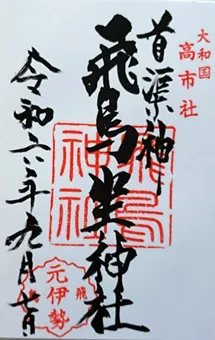 大和国
高市社
首渠神
飛鳥坐神社
飛鳥
神社
令和六年九月
元伊勢
飛